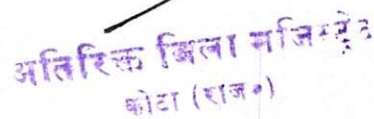 अतिरिक्त जिला मजिस्ट्रेट
कोटा (राज०)